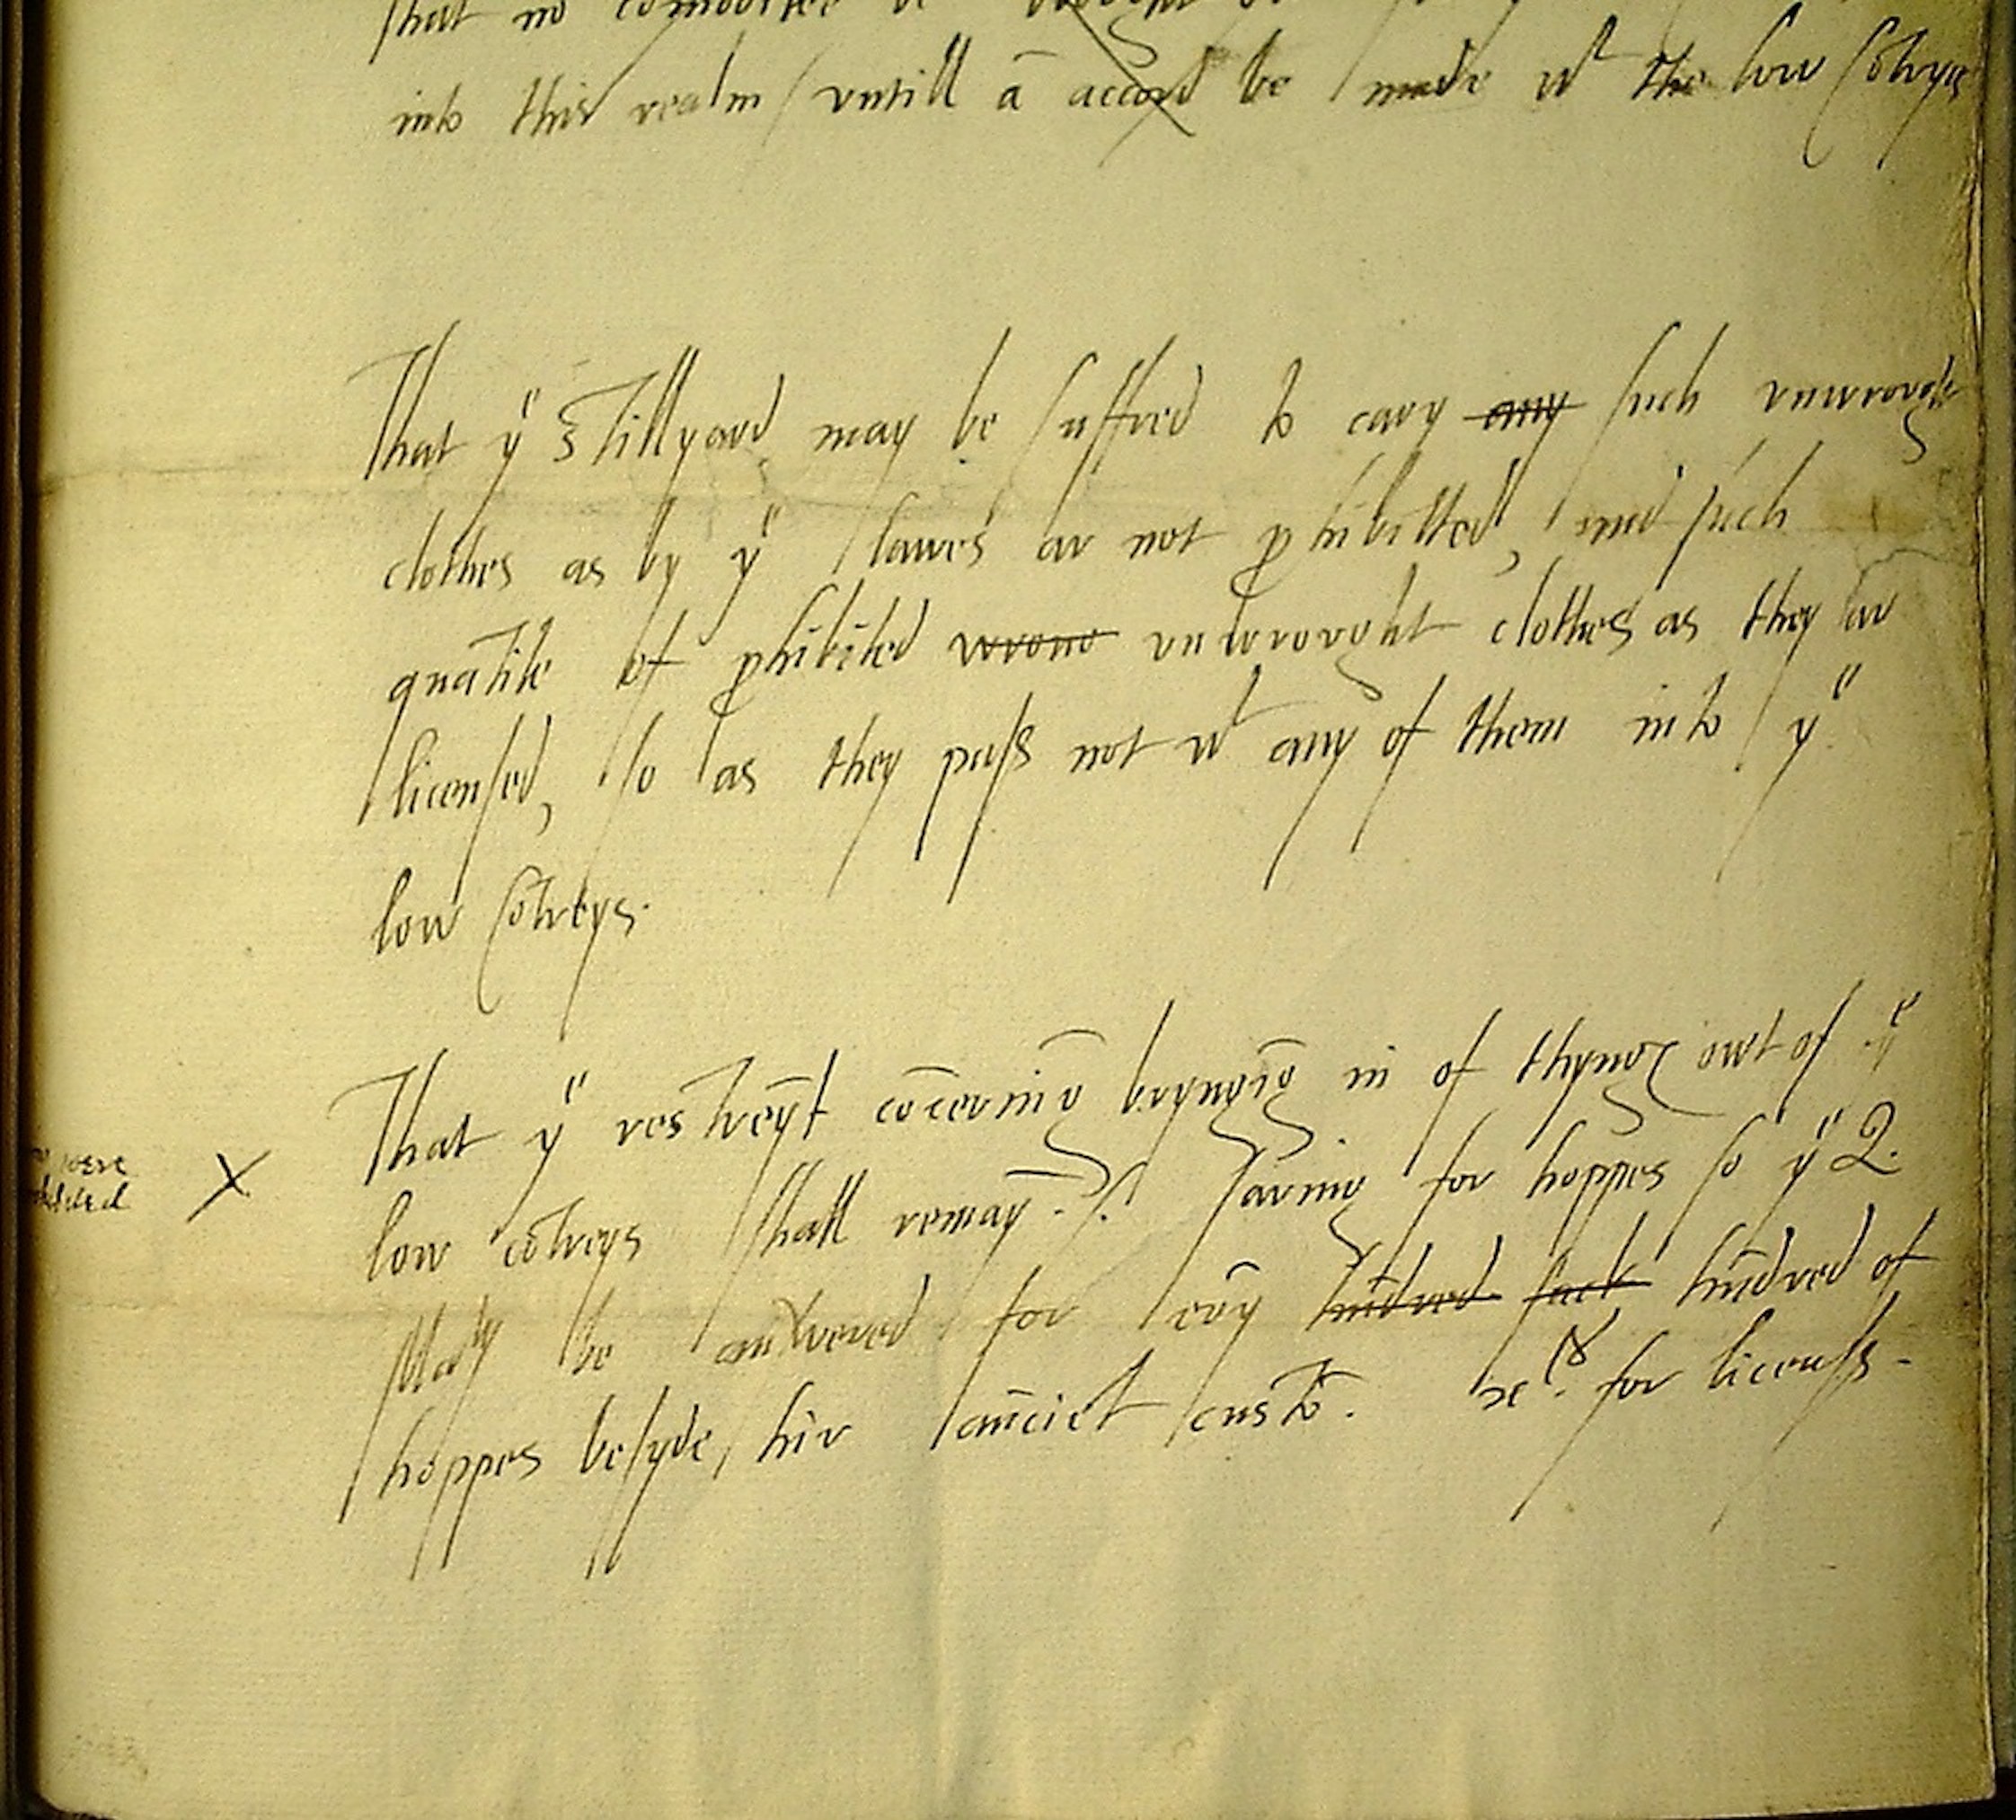 that no comoditee be brought
into this realm / untill ā accord be made wt the low Cōtreys
That ye Stillyard may be suffred to cary any such unwrought
clothes as by ye lawes ar not phibitted, and such
quātite of phibited wrono unwrought clothes as they ar
licensed, so as they pass not wt any of them into ye
low Cōtreys.
That ye restreyt cōcerning bryngīg in of thyngs owt of ye
low cōtreys shall remay̅. saving for hoppes so ye Q.
were
Maty be answered for evy̅ hūdred sack hūdred of
hoppes besyde, hir aūciēt custō. xs. for licenss.